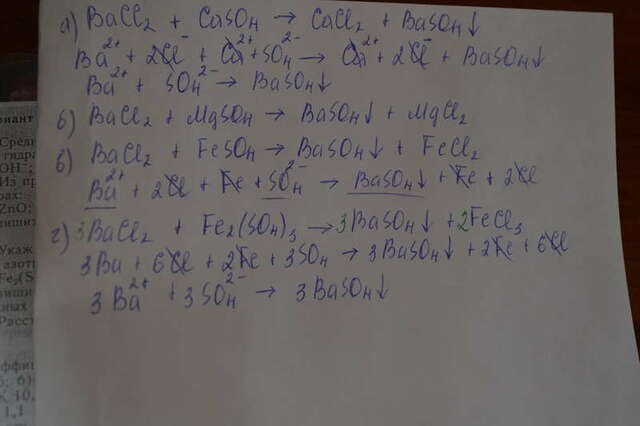 а) BaCl₂ + CaSO₄ → CaCl₂ + BaSO₄↓
Ba²⁺ + 2Cl⁻ + Ca²⁺ + SO₄²⁻ → Ca²⁺ + 2Cl⁻ + BaSO₄↓
Ba²⁺ + SO₄²⁻ → BaSO₄↓
б) BaCl₂ + MgSO₄ → BaSO₄↓ + MgCl₂
в) BaCl₂ + FeSO₄ → BaSO₄↓ + FeCl₂
Ba²⁺ + 2Cl + Fe + SO₄²⁻ → BaSO₄↓ + Fe + 2Cl
г) 3BaCl₂ + Fe₂(SO₄)₃ → 3BaSO₄↓ + 2FeCl₃
3Ba + 6Cl + 2Fe + 3SO₄ → 3BaSO₄↓ + 2Fe + 6Cl
3Ba²⁺ + 3SO₄²⁻ → 3BaSO₄↓
риант
Сред
гидра
OH⁻;
Из пр
рах:
ZnO;
Укаж
азот
Fe₂(S
ных
Расст
эффиц
6)
10,
1,1